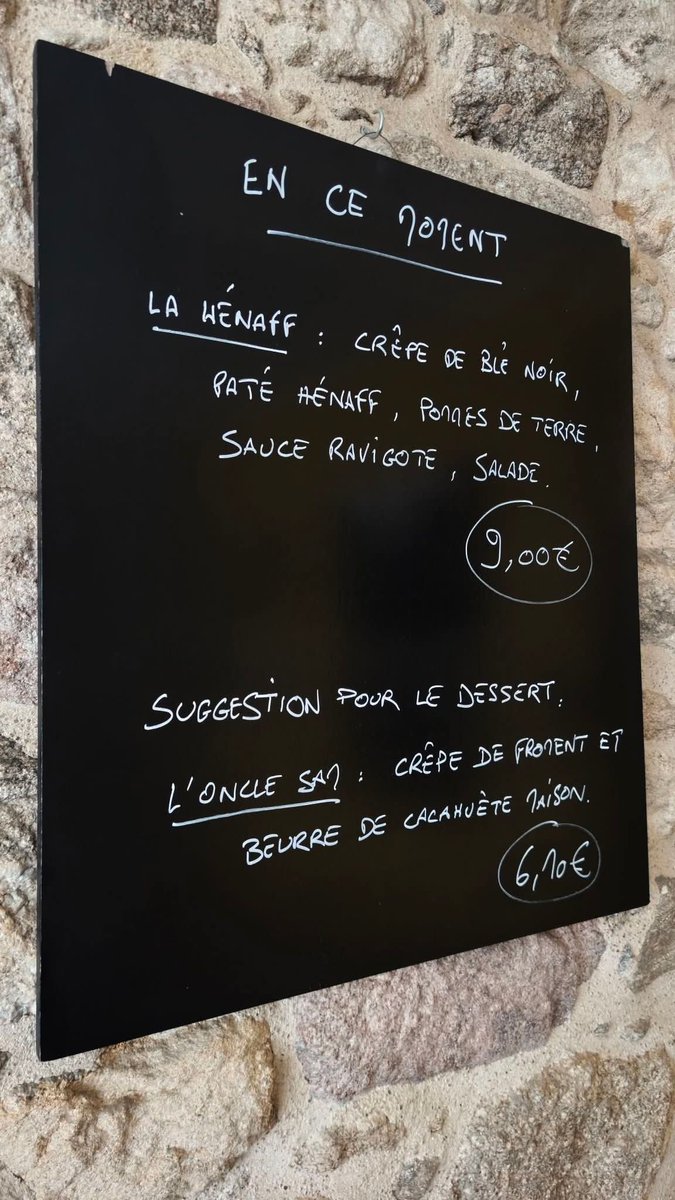 EN CE MOMENT
LA HÉNAFF : CRÊPE DE BLÉ NOIR,
PATÉ HÉNAFF, POMMES DE TERRE,
SAUCE RAVIGOTE, SALADE.
9,00€
SUGGESTION POUR LE DESSERT:
L'ONCLE SAM : CRÊPE DE FROMENT ET
BEURRE DE CACAHUÈTE MAISON.
6,10€